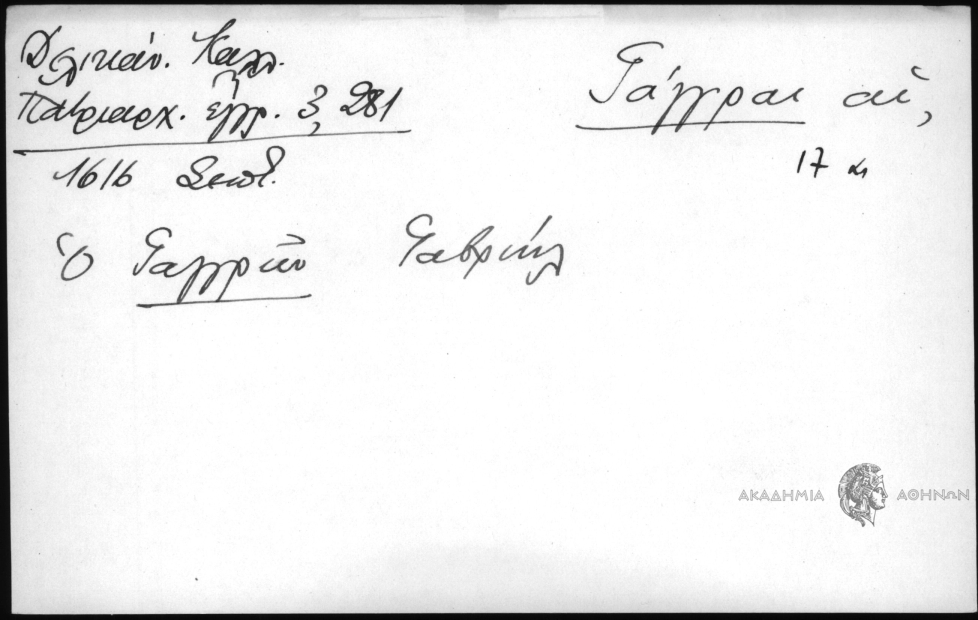 Δελικάν. Καλλ.
Πατριαρχ. ἔγγρ. 3, 281
1616 Σεπτ.
Γάγγραι αἱ,
17 αι
Ὁ Γαγγρῶν Γαβριήλ
ΑΚΑΔΗΜΙΑ ΑΘΗΝΩΝ